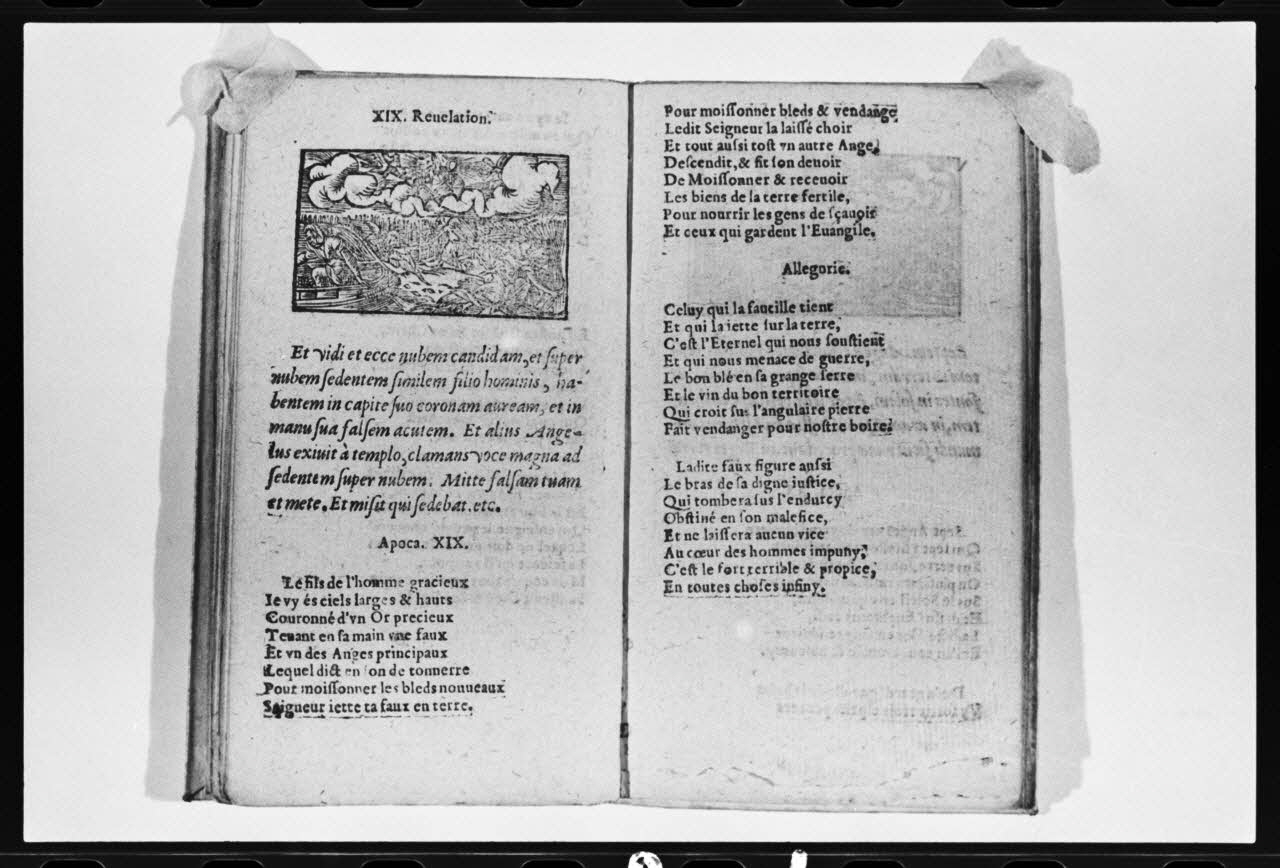 XIX. Reuelation.
Et vidi et ecce nubem candidam, et ſuper
nubem ſedentem ſimilem filio hominis, ha-
bentem in capite ſuo coronam auream, et in
manu ſua falſem acutem. Et alius Ange-
lus exiuit à templo, clamans voce magna ad
ſedentem ſuper nubem. Mitte falſam tuam
et mete. Et miſit qui ſedebat. etc.
Apoca. XIX.
Le fils de l'homme gracieux
Ie vy és ciels larges & hauts
Couronné d'vn Or precieux
Tenant en ſa main vne faux
Et vn des Anges principaux
Lequel dict en ſon de tonnerre
Pour moiſſonner les bleds nouueaux
Seigneur iette ta faux en terre.
Pour moiſſonner bleds & vendange
Ledit Seigneur la laiſſé choir
Et tout auſsi toſt vn autre Ange,
Deſcendit, & fit ſon deuoir
De Moiſſonner & receuoir
Les biens de la terre fertile,
Pour nourrir les gens de ſçauoir
Et ceux qui gardent l'Euangile.
Allegorie.
Celuy qui la faucille tient
Et qui la iette ſur la terre,
C'eſt l'Eternel qui nous ſouſtient
Et qui nous menace de guerre,
Le bon blé en ſa grange ſerre
Et le vin du bon territoire
Qui croit ſus l'angulaire pierre
Fait vendanger pour noſtre boire.
Ladite faux figure auſsi
Le bras de ſa digne iuſtice,
Qui tombera ſus l'endurcy
Obſtiné en ſon malefice,
Et ne laiſſera aucun vice
Au cœur des hommes impuny,
C'eſt le fort terrible & propice,
En toutes choſes infiny.